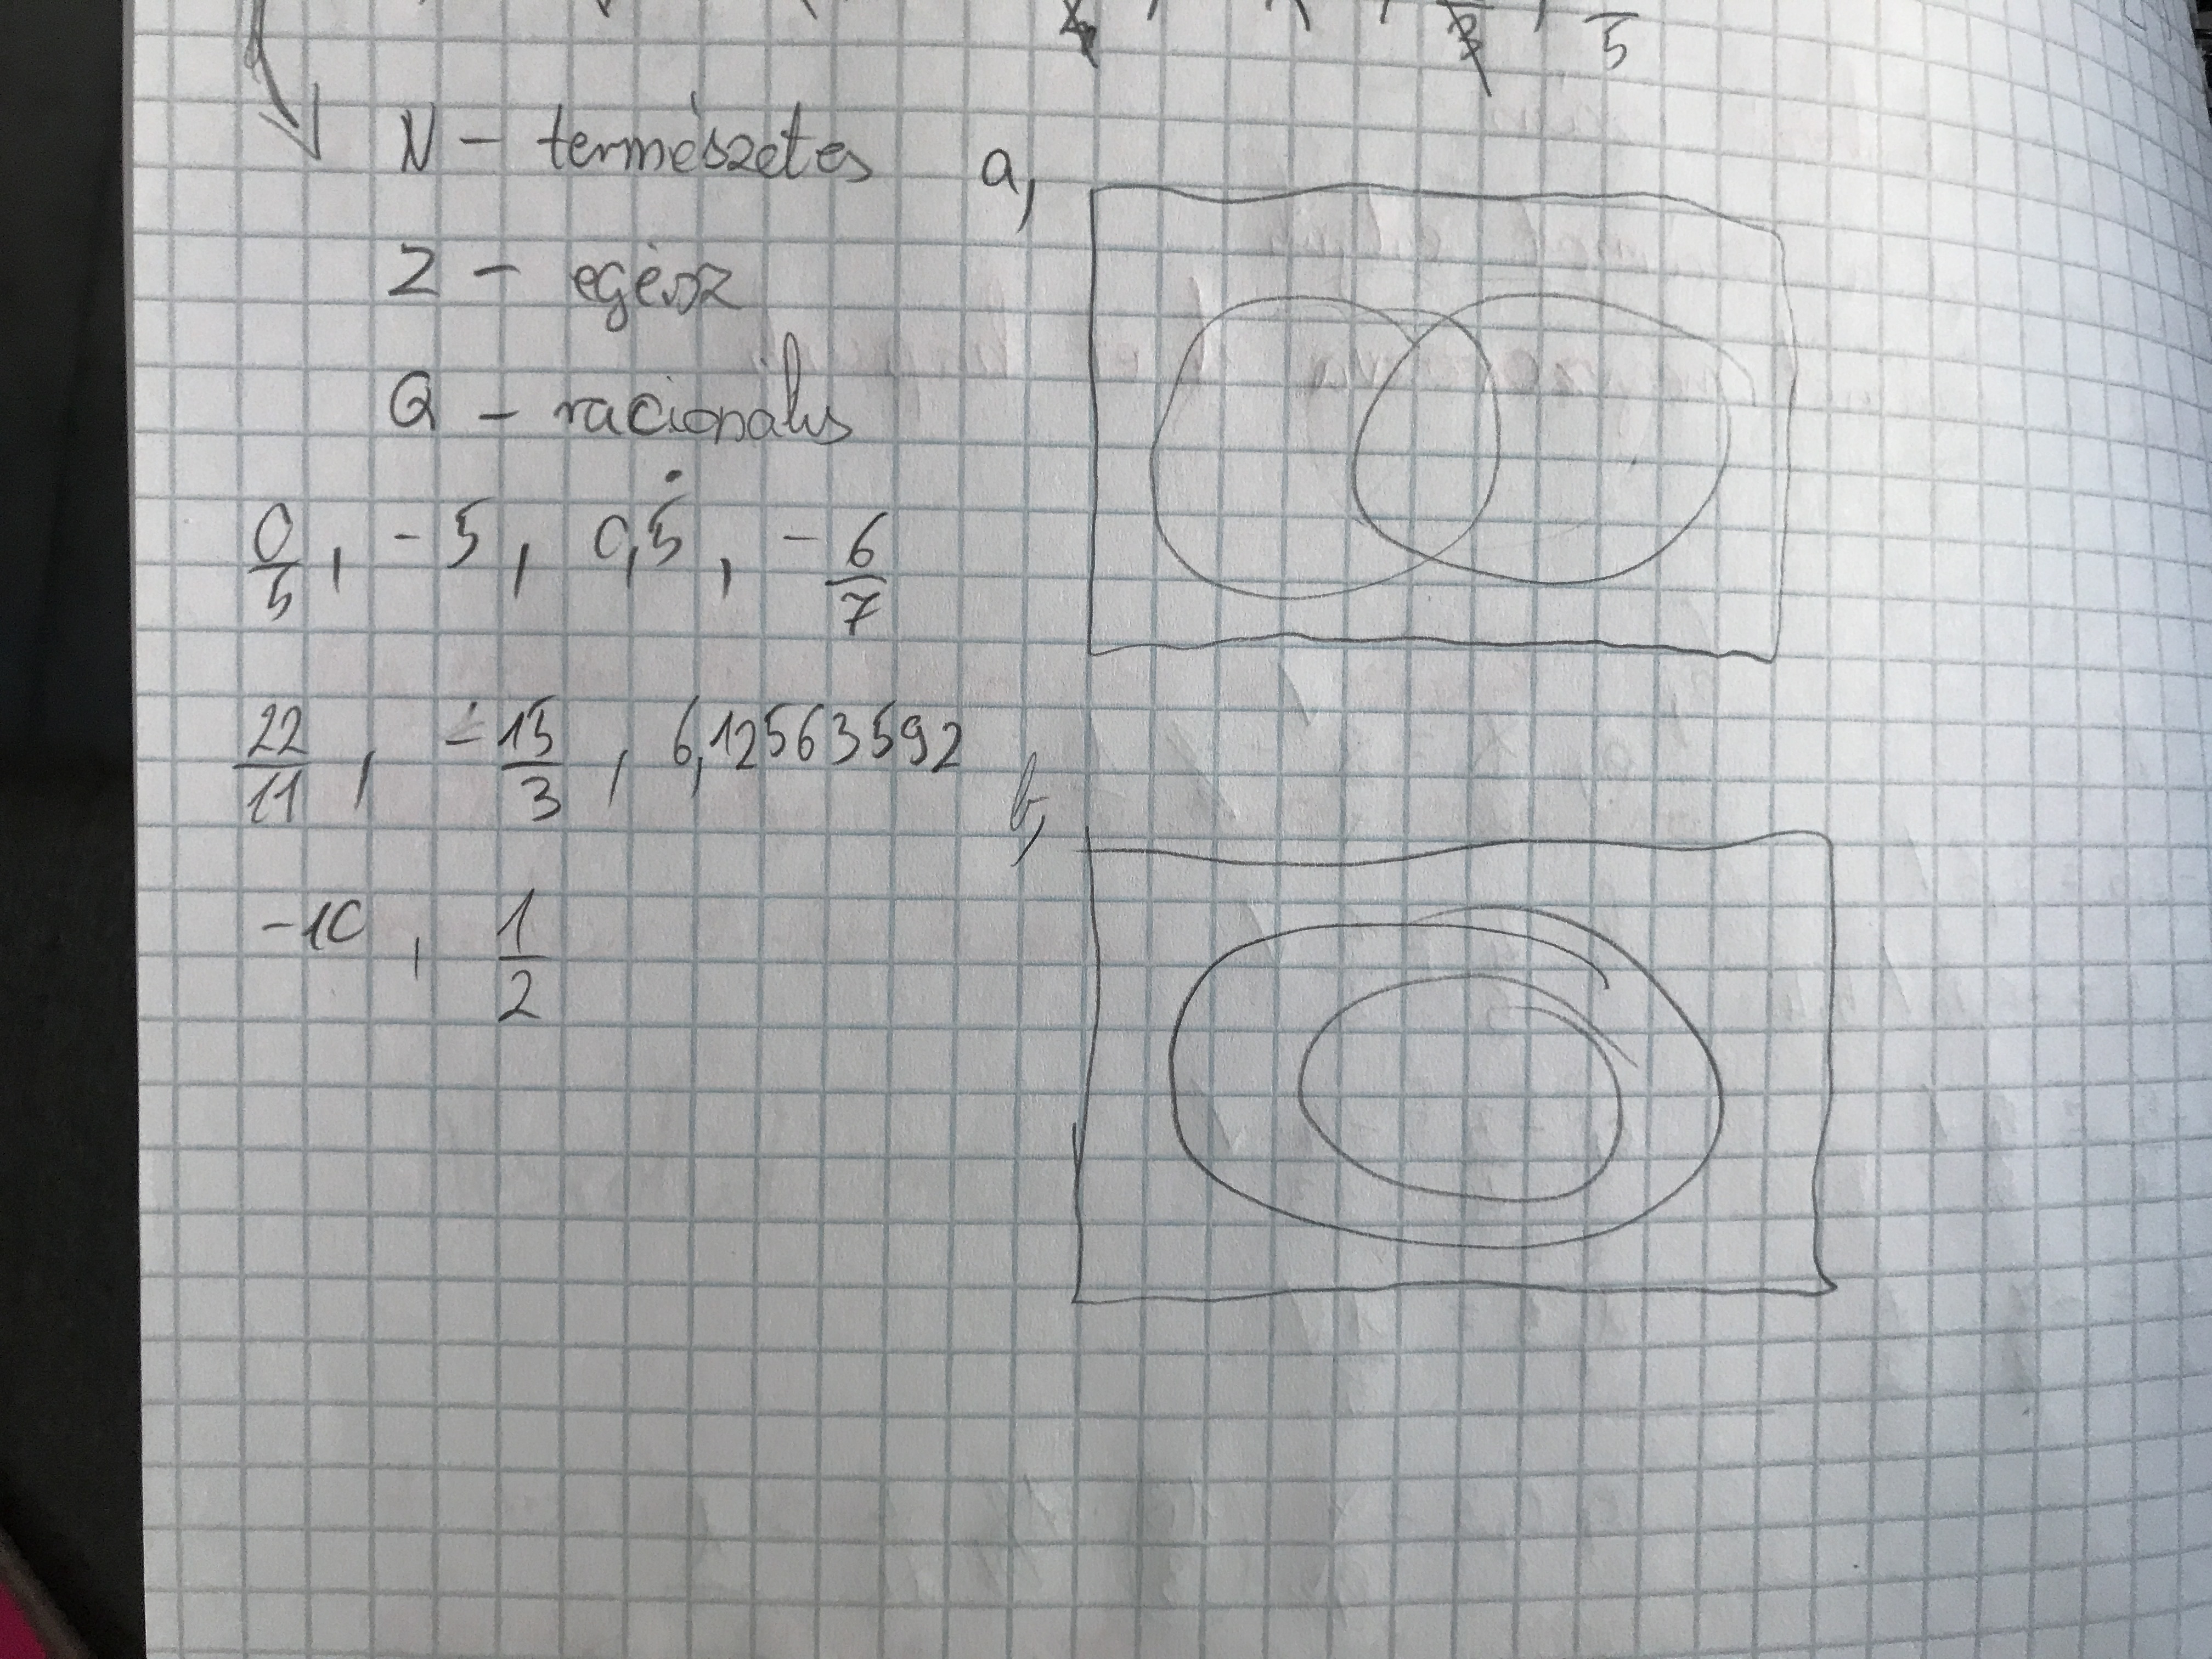 5
N - természetes
a,
Z - egész
Q - racionális
0/5, -5, 0,5̇, -6/7
22/11, -15/3, 6,12563592
b,
-10, 1/2